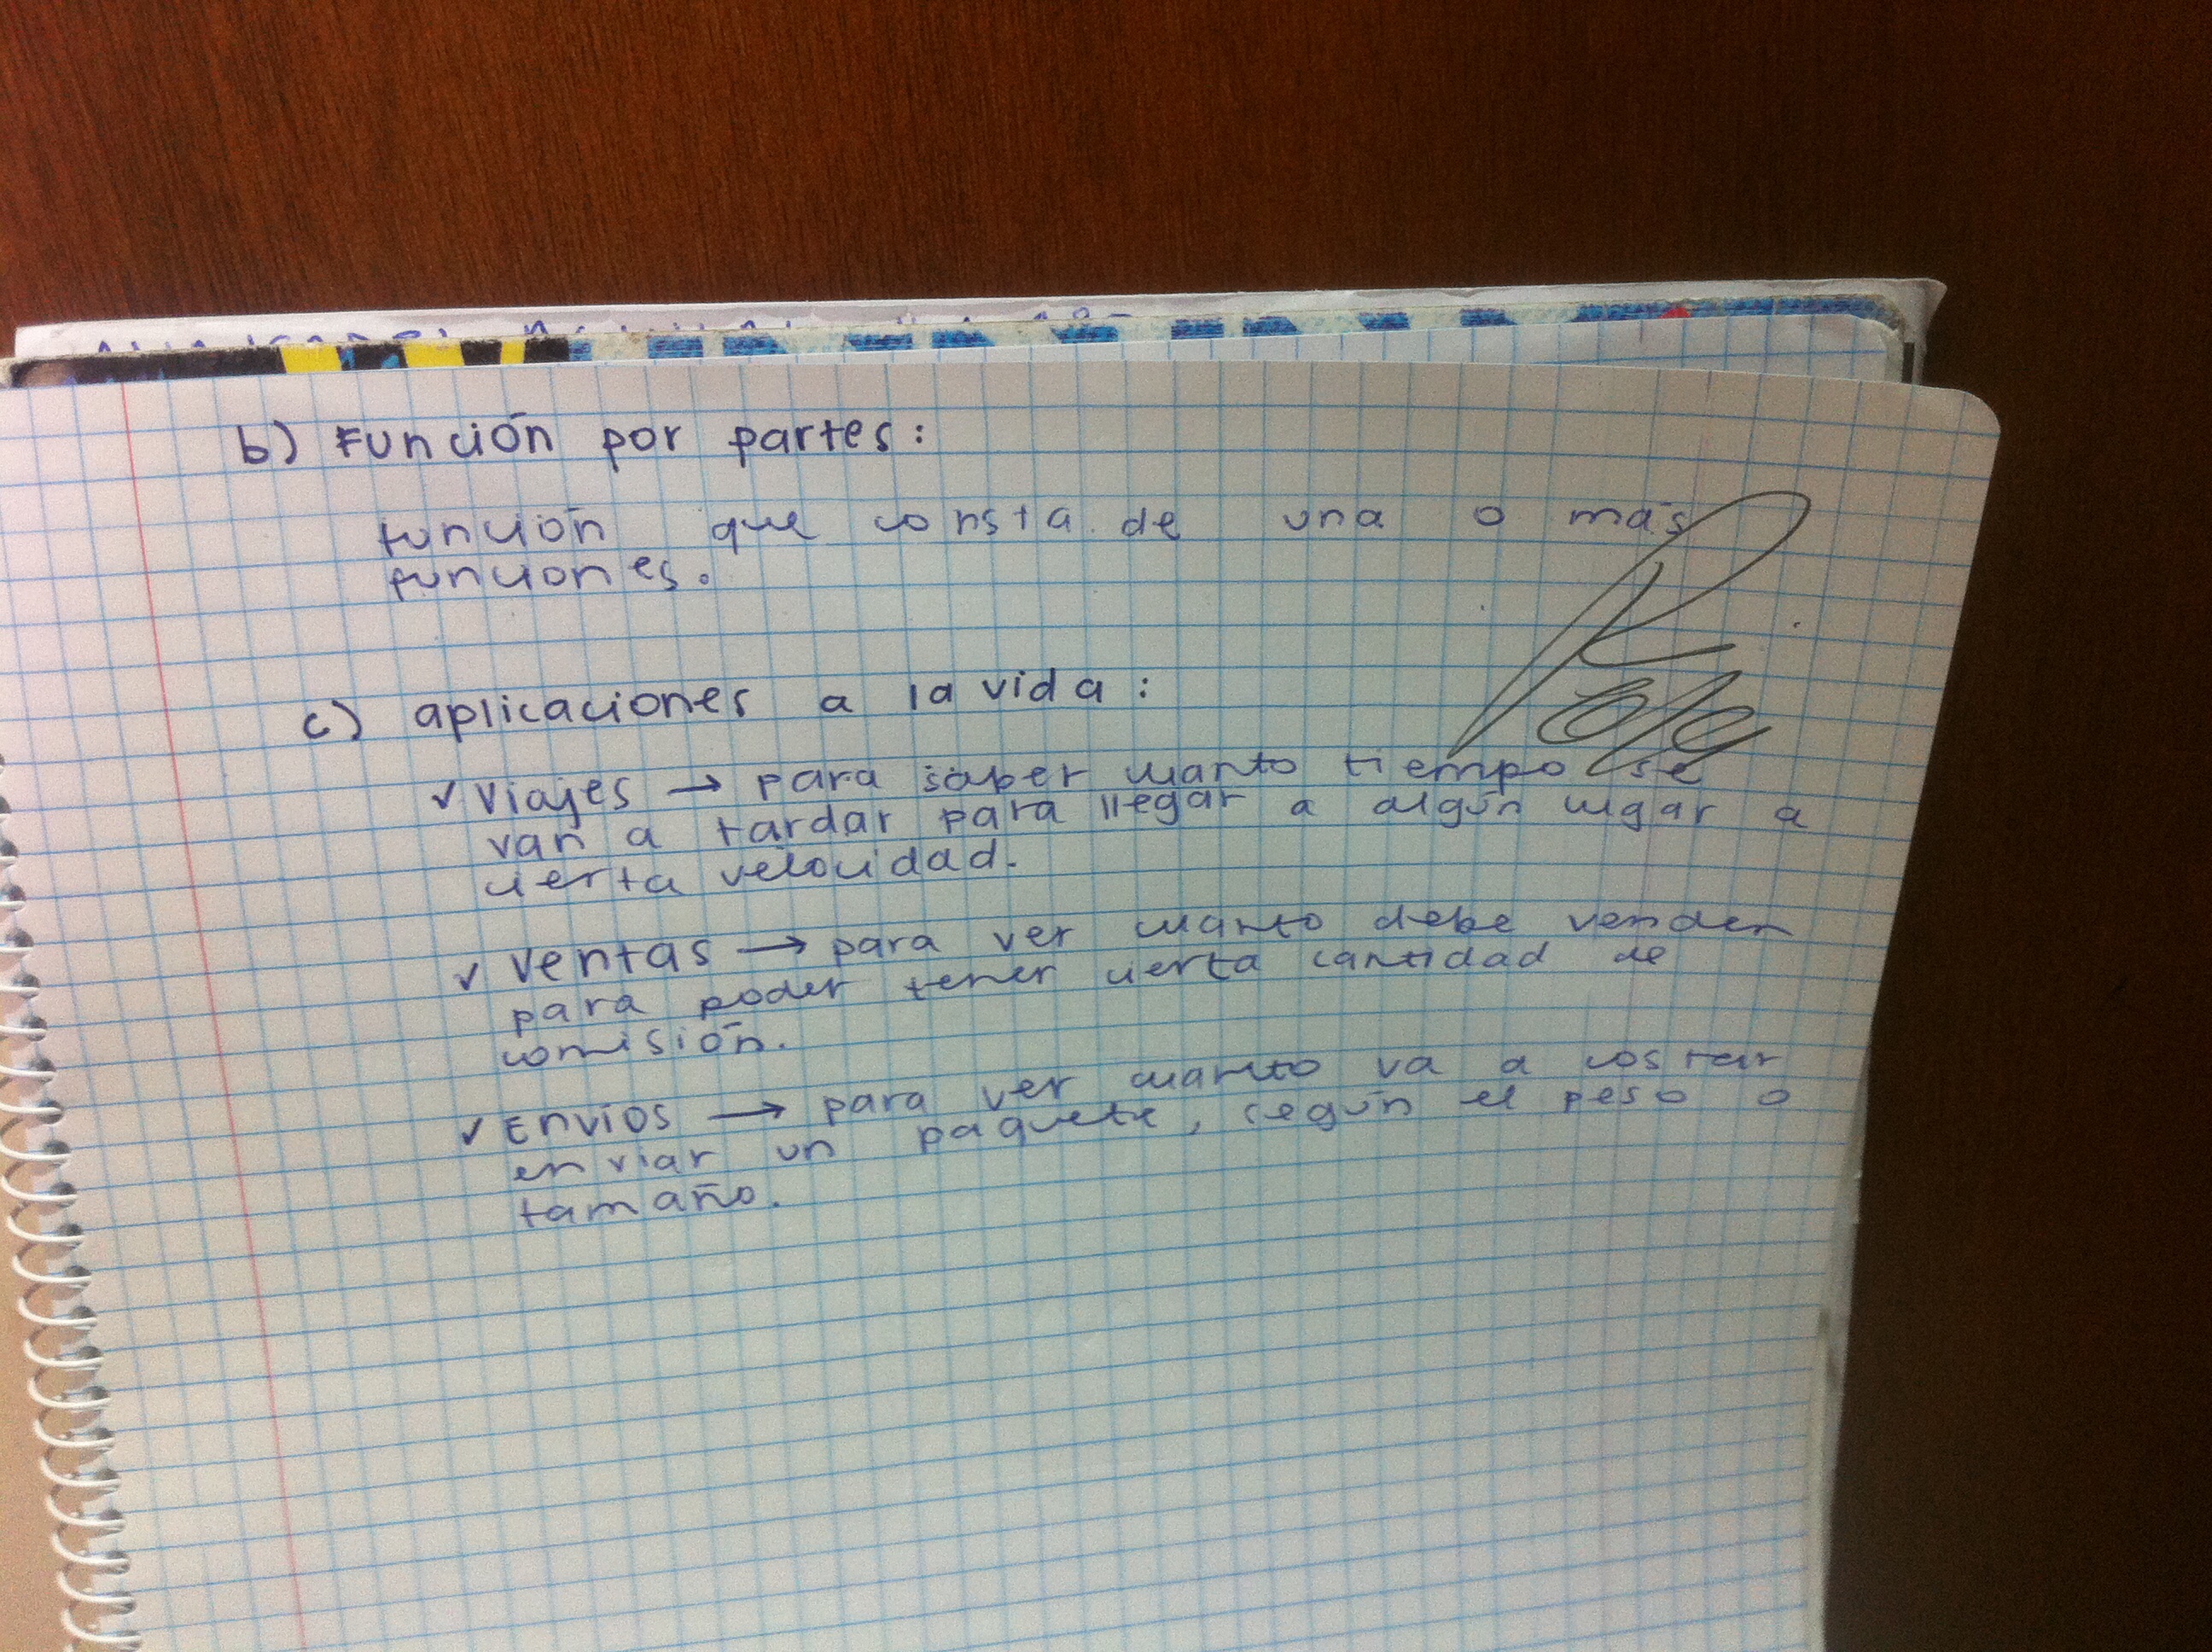 b) Función por partes:
función que consta de una o más
funciones.
c) aplicaciones a la vida:
✓ Viajes → para saber cuanto tiempo se
van a tardar para llegar a algún lugar a
cierta velocidad.
✓ Ventas → para ver cuanto debe vender
para poder tener cierta cantidad de
comisión.
✓ Envios → para ver cuanto va a costar
enviar un paquete, según el peso o
tamaño.